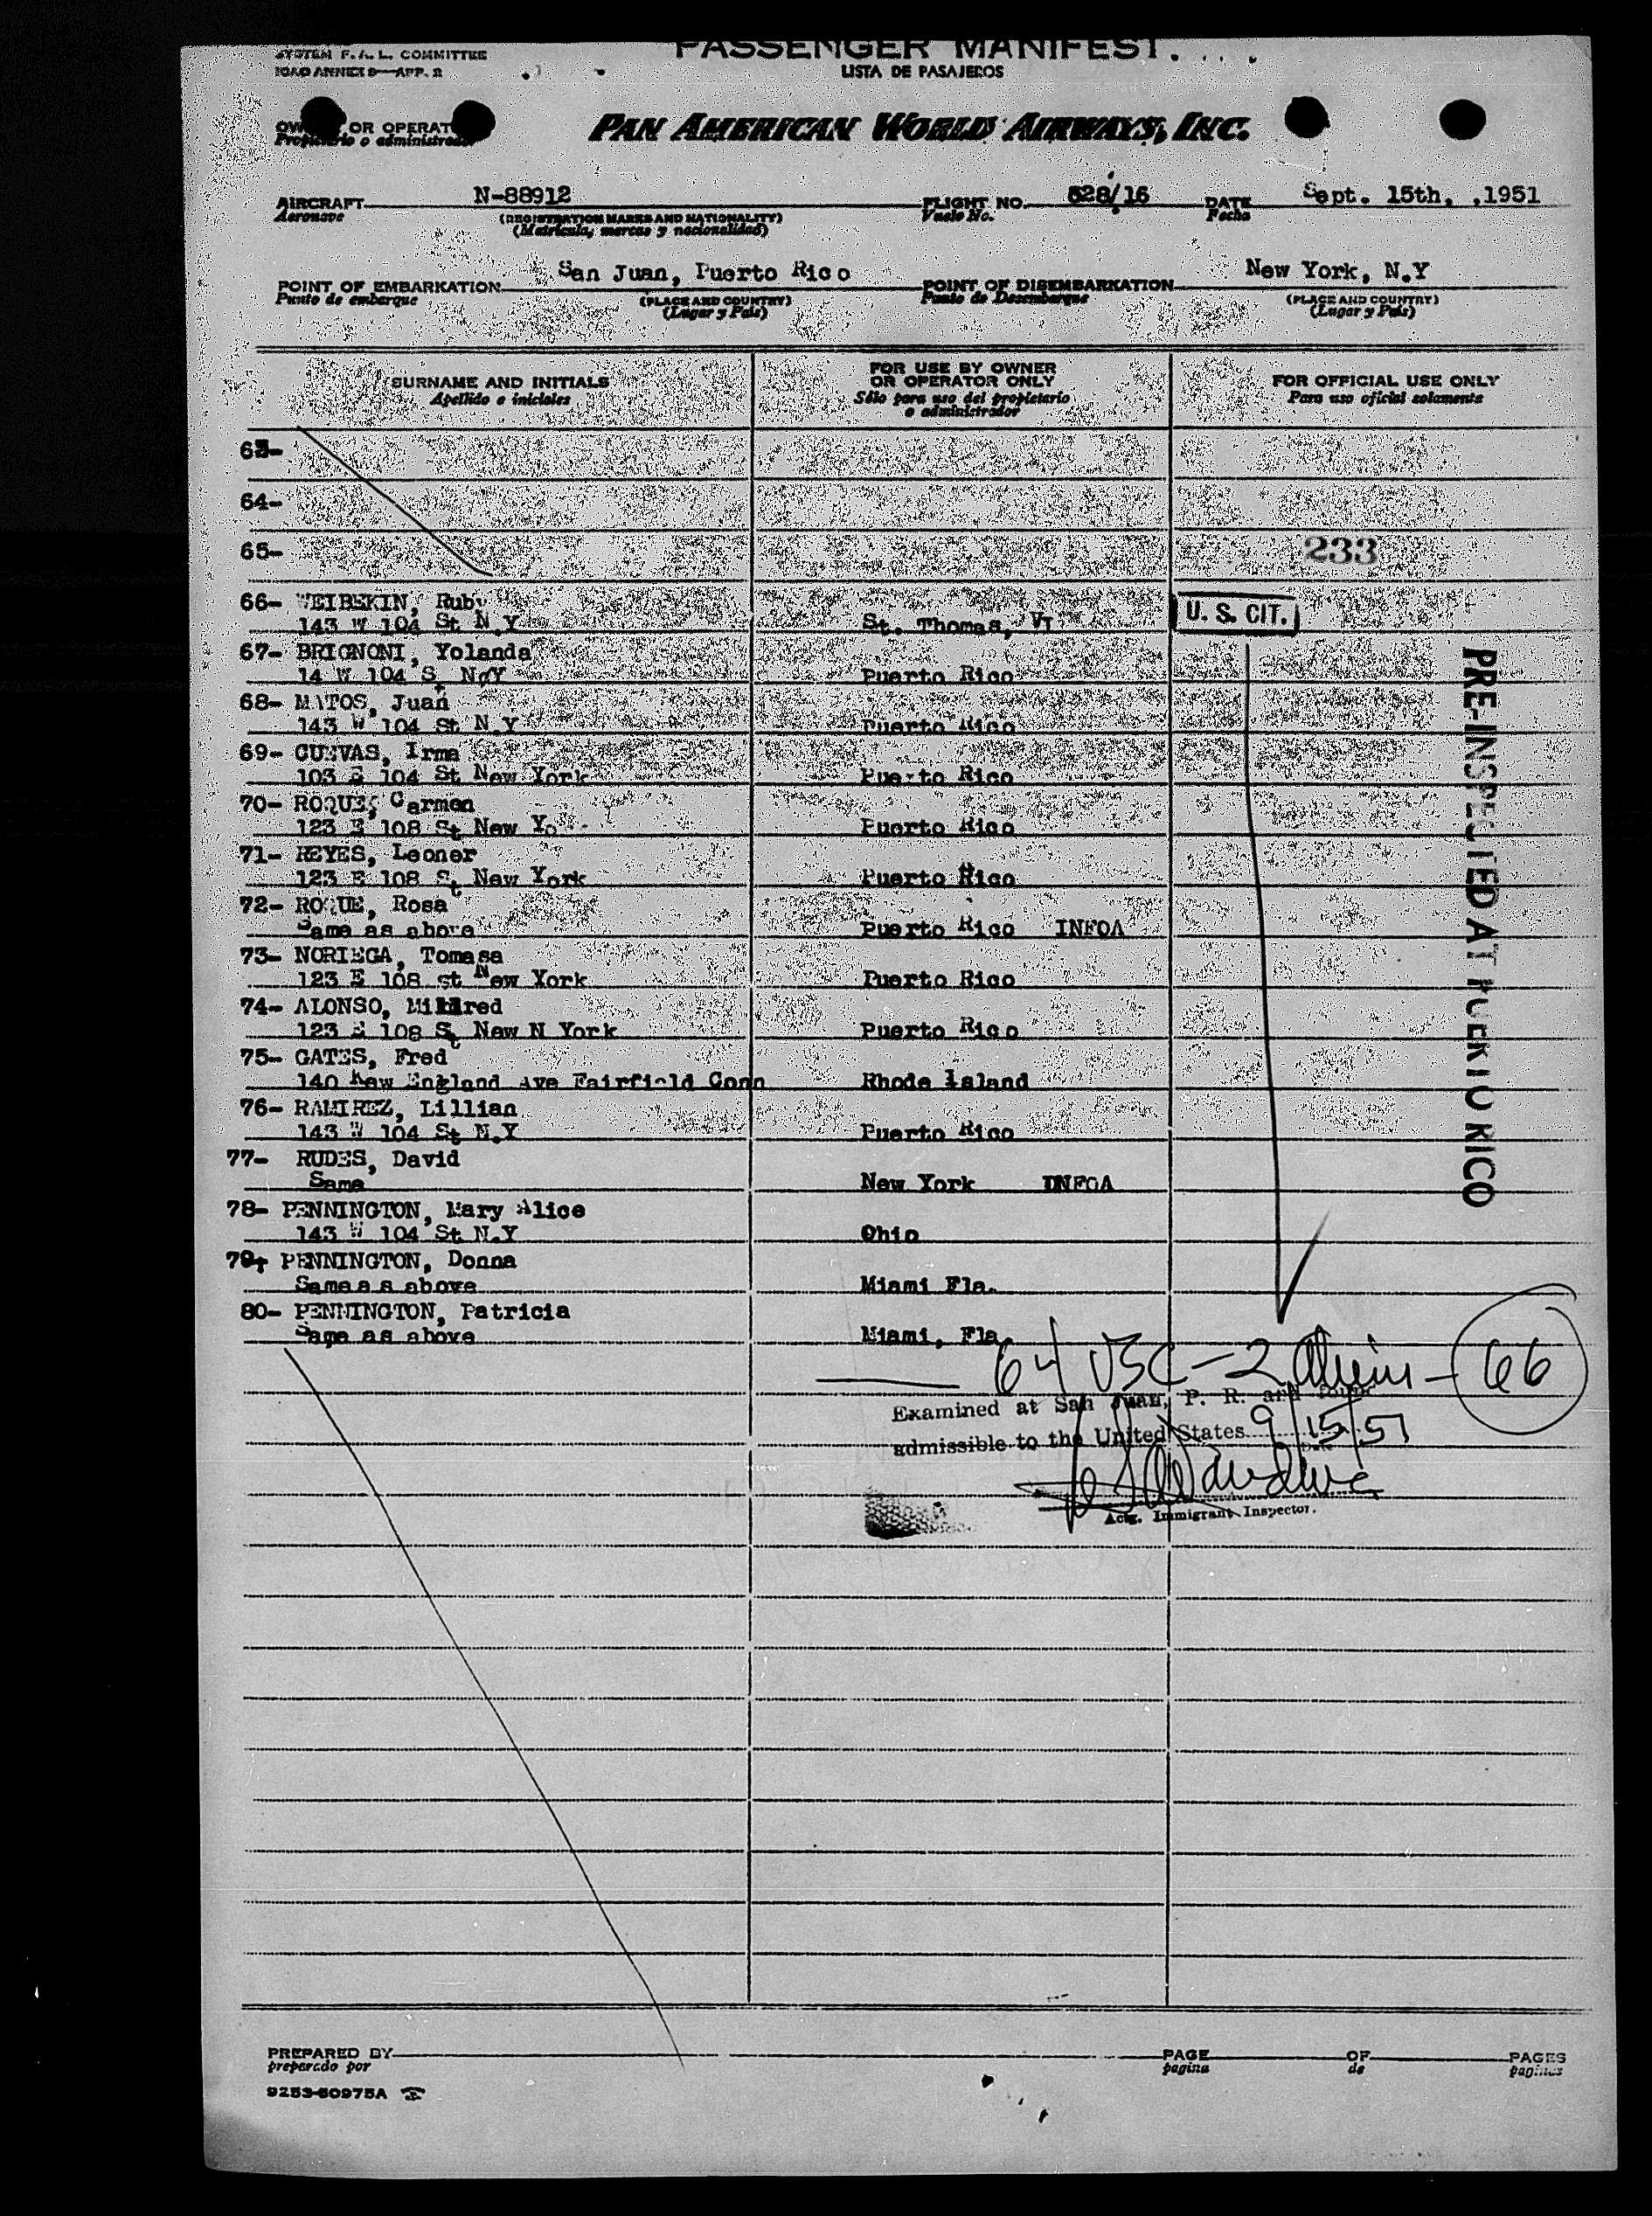 SYSTEM F. A. L. COMMITTEE
ICAO ANNEX 9—APP. 2
PASSENGER MANIFEST.
LISTA DE PASAJEROS
OWNER OR OPERATOR
Propietario o administrador
PAN AMERICAN WORLD AIRWAYS, INC.
AIRCRAFT N-88912 FLIGHT NO. 528/16 DATE Sept. 15th, ,1951
Aeronave (REGISTRATION MARKS AND NATIONALITY) Vuelo No. Fecha
(Matricula, marcas y nacionalidad)
POINT OF EMBARKATION San Juan, Puerto Rico POINT OF DISEMBARKATION New York, N.Y
Punto de embarque (PLACE AND COUNTRY) Punto de Desembarque (PLACE AND COUNTRY)
(Lugar y País) (Lugar y País)
SURNAME AND INITIALS FOR USE BY OWNER OR OPERATOR ONLY FOR OFFICIAL USE ONLY
Apellido e iniciales Sólo para uso del propietario o administrador Para uso oficial solamente
63-
64-
65- 233
66- WEIBSKIN, Ruby
143 W 104 St N.Y St. Thomas, VI U. S. CIT.
67- BRIGNONI, Yolanda
14 W 104 S N Y Puerto Rico
68- MATOS, Juan
143 W 104 St N.Y Puerto Rico
69- CUEVAS, Irma
103 E 104 St New York Puerto Rico
70- ROQUE, Carmen
123 E 108 St New Yo Puerto Rico
71- REYES, Leoner
123 E 108 St New York Puerto Rico
72- ROQUE, Rosa
Same as above Puerto Rico INFOA
73- NORIEGA, Tomasa
123 E 108 st New York Puerto Rico
74- ALONSO, Mildred
123 E 108 St New N York Puerto Rico
75- GATES, Fred
140 New England Ave Fairfield Conn Rhode Island
76- RAMIREZ, Lillian
143 W 104 St N.Y Puerto Rico
77- RUDES, David
Same New York INFOA
78- PENNINGTON, Mary Alice
143 W 104 St N.Y Ohio
79- PENNINGTON, Donna
Same a s above Miami Fla.
80- PENNINGTON, Patricia
Same as above Miami, Fla.
PRE-INSPECTED AT PUERTO RICO
64 USC - 2 Aliens - 66
Examined at San Juan, P. R. and found
admissible to the United States 9/15/51
Date
Actg. Immigrant Inspector.
PREPARED BY PAGE OF PAGES
preparado por pagina de paginas
9253-60975A